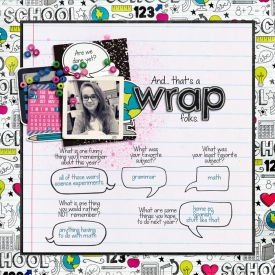 SCHOOL
123
Are we
done yet?
And... that's a
wrap
folks.
What is one funny
thing you'll remember
about this year?
all of those weird
science experiments
What was
your favorite
subject?
grammar
What was
your least favorite
subject?
math
What is one thing
you would rather
NOT remember?
anything having
to do with math
What are some
things you hope
to do next year?